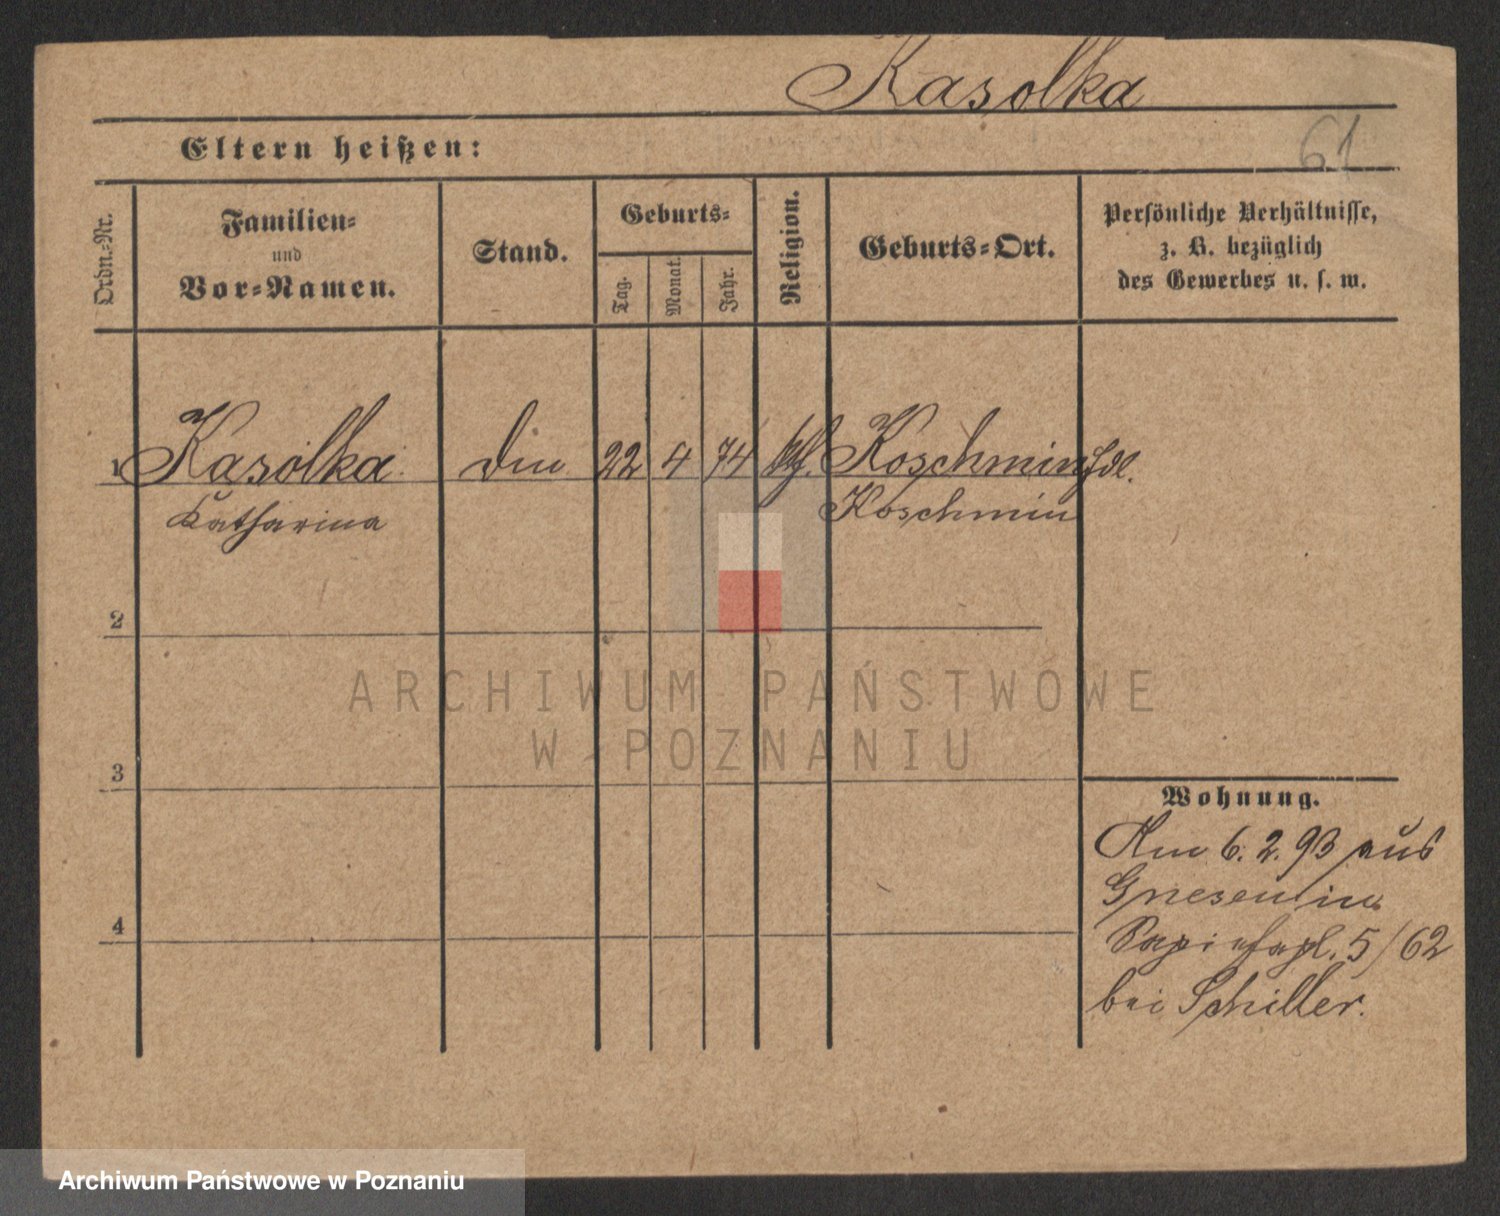 Kasolka
61
Eltern heißen:
Ordn.-Nr.
Familien-
und
Vor-Namen.
Stand.
Geburts-
Tag.
Monat.
Jahr.
Religion.
Geburts-Ort.
Persönliche Verhältnisse,
z. B. bezüglich
des Gewerbes u. s. w.
1 Kasolka Din 22 4 74 kth. Koschmin
Katharina Koschmin
2
ARCHIWUM PAŃSTWOWE
W POZNANIU
3
Wohnung.
Am 6. 2. 93 aus
Gnesen in
4
Sapiehapl. 5/62
bei Schiller.
Archiwum Państwowe w Poznaniu